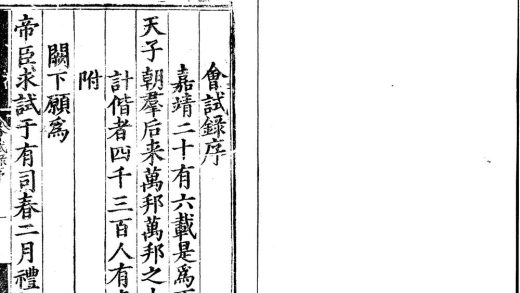 會試錄序
嘉靖二十有六載是爲
天子朝羣后来萬邦萬邦之
計偕者四千三百人有
附
闕下願爲
帝臣求試于有司春二月禮